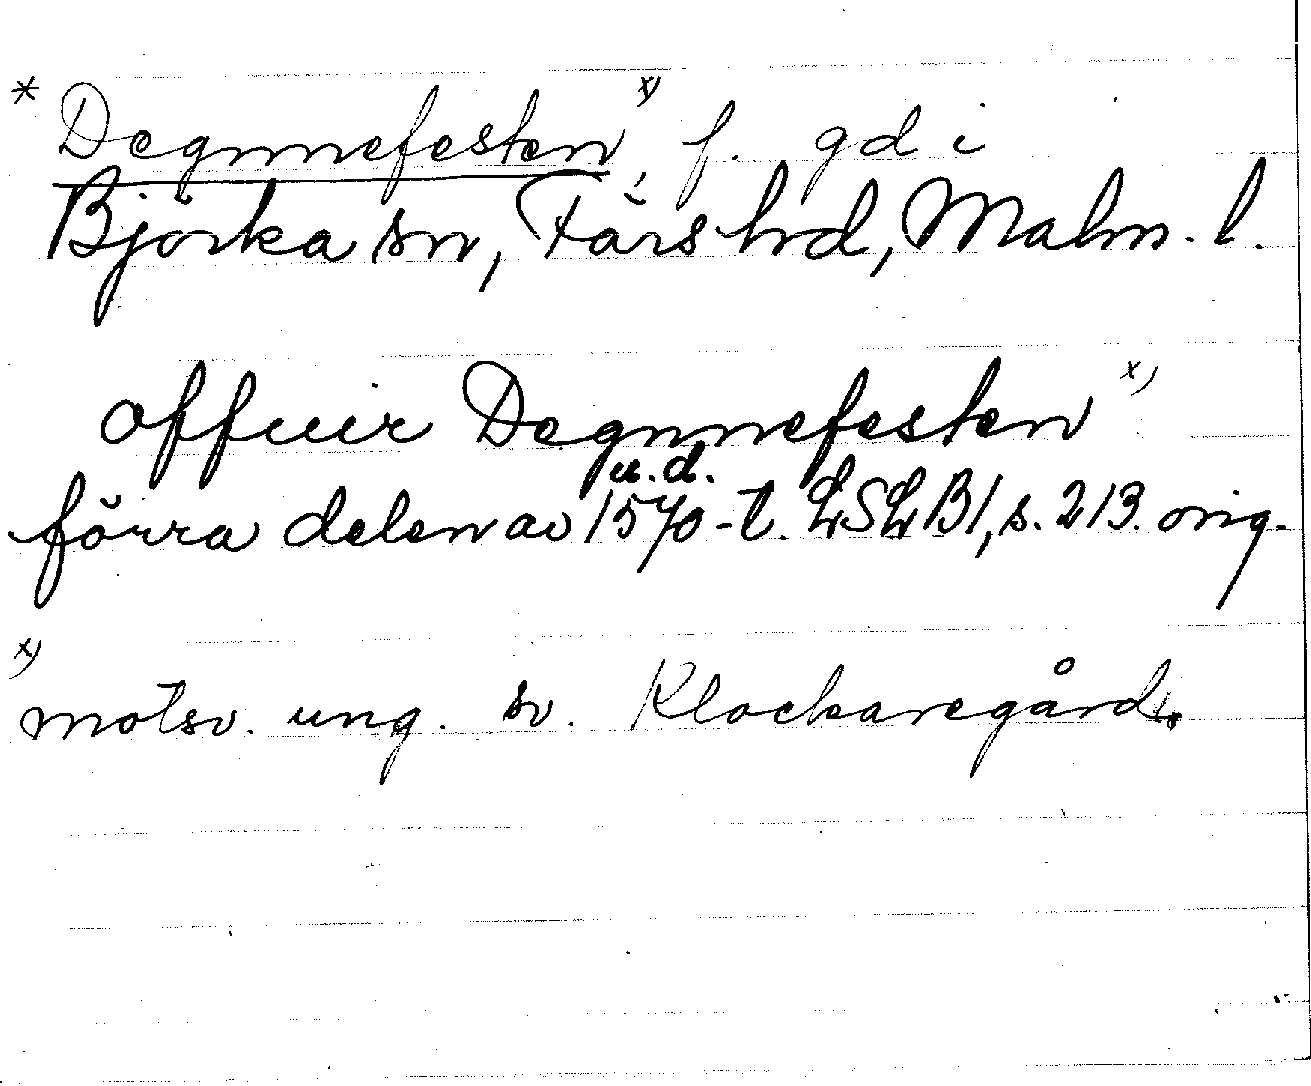 * Degnnefesten x) f. gd i
Björka sn, Färs hd, Malm. l.
offuir Degnnefesten x)
u.d.
förra delen av 1570-t. LSLB1, s. 213. orig.
x)
motsv. ung. sv. Klockaregård.